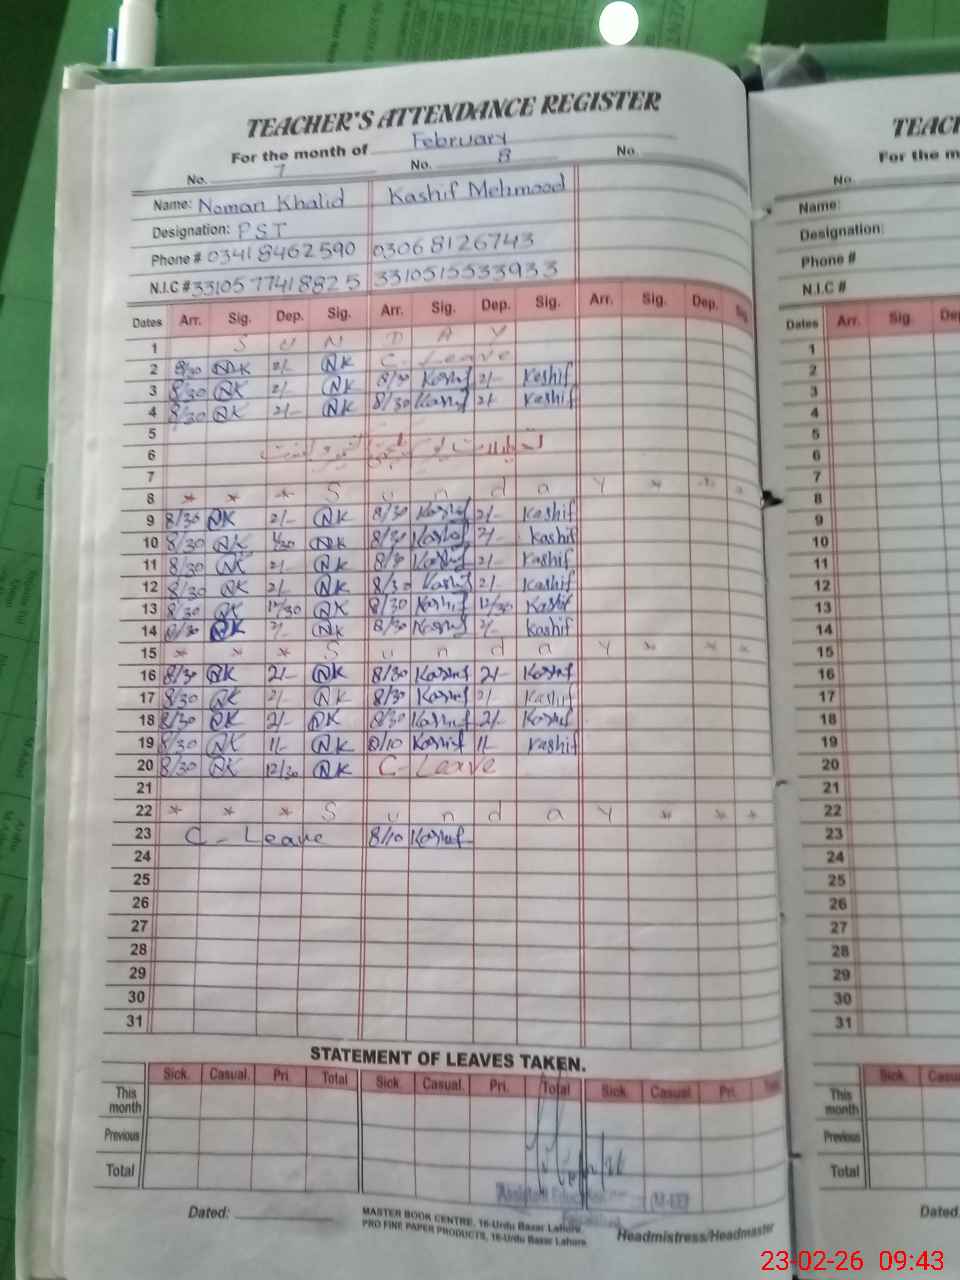 TEACHER'S ATTENDANCE REGISTER
For the month of February
No. 7 No. 8 No.
Name: Noman Khalid Kashif Mehmood
Designation: PST
Phone # 03418462590 03068126743
N.I.C # 3310577418825 3310515533933
Dates Arr. Sig. Dep. Sig. Arr. Sig. Dep. Sig. Arr. Sig. Dep. Sig.
1 S U N D A Y
2 8/30 NK 2/- NK C-Leave
3 8/30 NK 2/- NK 8/30 Kashif 2/- Kashif
4 8/30 NK 2/- NK 8/30 Kashif 2/- Kashif
5
6
7
8 * * * S u n d a y * * *
9 8/30 NK 2/- NK 8/30 Kashif 2/- Kashif
10 8/30 NK 1/30 NK 8/30 Kashif 2/- Kashif
11 8/30 NK 2/- NK 8/30 Kashif 2/- Kashif
12 8/30 NK 2/- NK 8/30 Kashif 2/- Kashif
13 8/30 NK 12/30 NK 8/30 Kashif 12/30 Kashif
14 8/30 NK 2/- NK 8/30 Kashif 2/- Kashif
15 * * * S u n d a y * * *
16 8/30 NK 2/- NK 8/30 Kashif 2/- Kashif
17 8/30 NK 2/- NK 8/30 Kashif 2/- Kashif
18 8/30 NK 2/- NK 8/30 Kashif 2/- Kashif
19 8/30 NK 1/- NK 8/10 Kashif 1/- Kashif
20 8/30 NK 12/30 NK C-Leave
21
22 * * * S u n d a y * * *
23 C-Leave 8/10 Kashif
24
25
26
27
28
29
30
31
STATEMENT OF LEAVES TAKEN.
Sick. Casual. Pri. Total Sick. Casual. Pri. Total Sick. Casual Pri. Total
This month
Previous
Total
Dated:
MASTER BOOK CENTRE, 16-Urdu Bazar Lahore.
PRO FINE PAPER PRODUCTS, 16-Urdu Bazar Lahore.
Headmistress/Headmaster
No.
Name:
Designation:
Phone #
N.I.C #
Dates Arr. Sig.
1
2
3
4
5
6
7
8
9
10
11
12
13
14
15
16
17
18
19
20
21
22
23
24
25
26
27
28
29
30
31
Sick.
This month
Previous
Total
Dated.
23-02-26 09:43